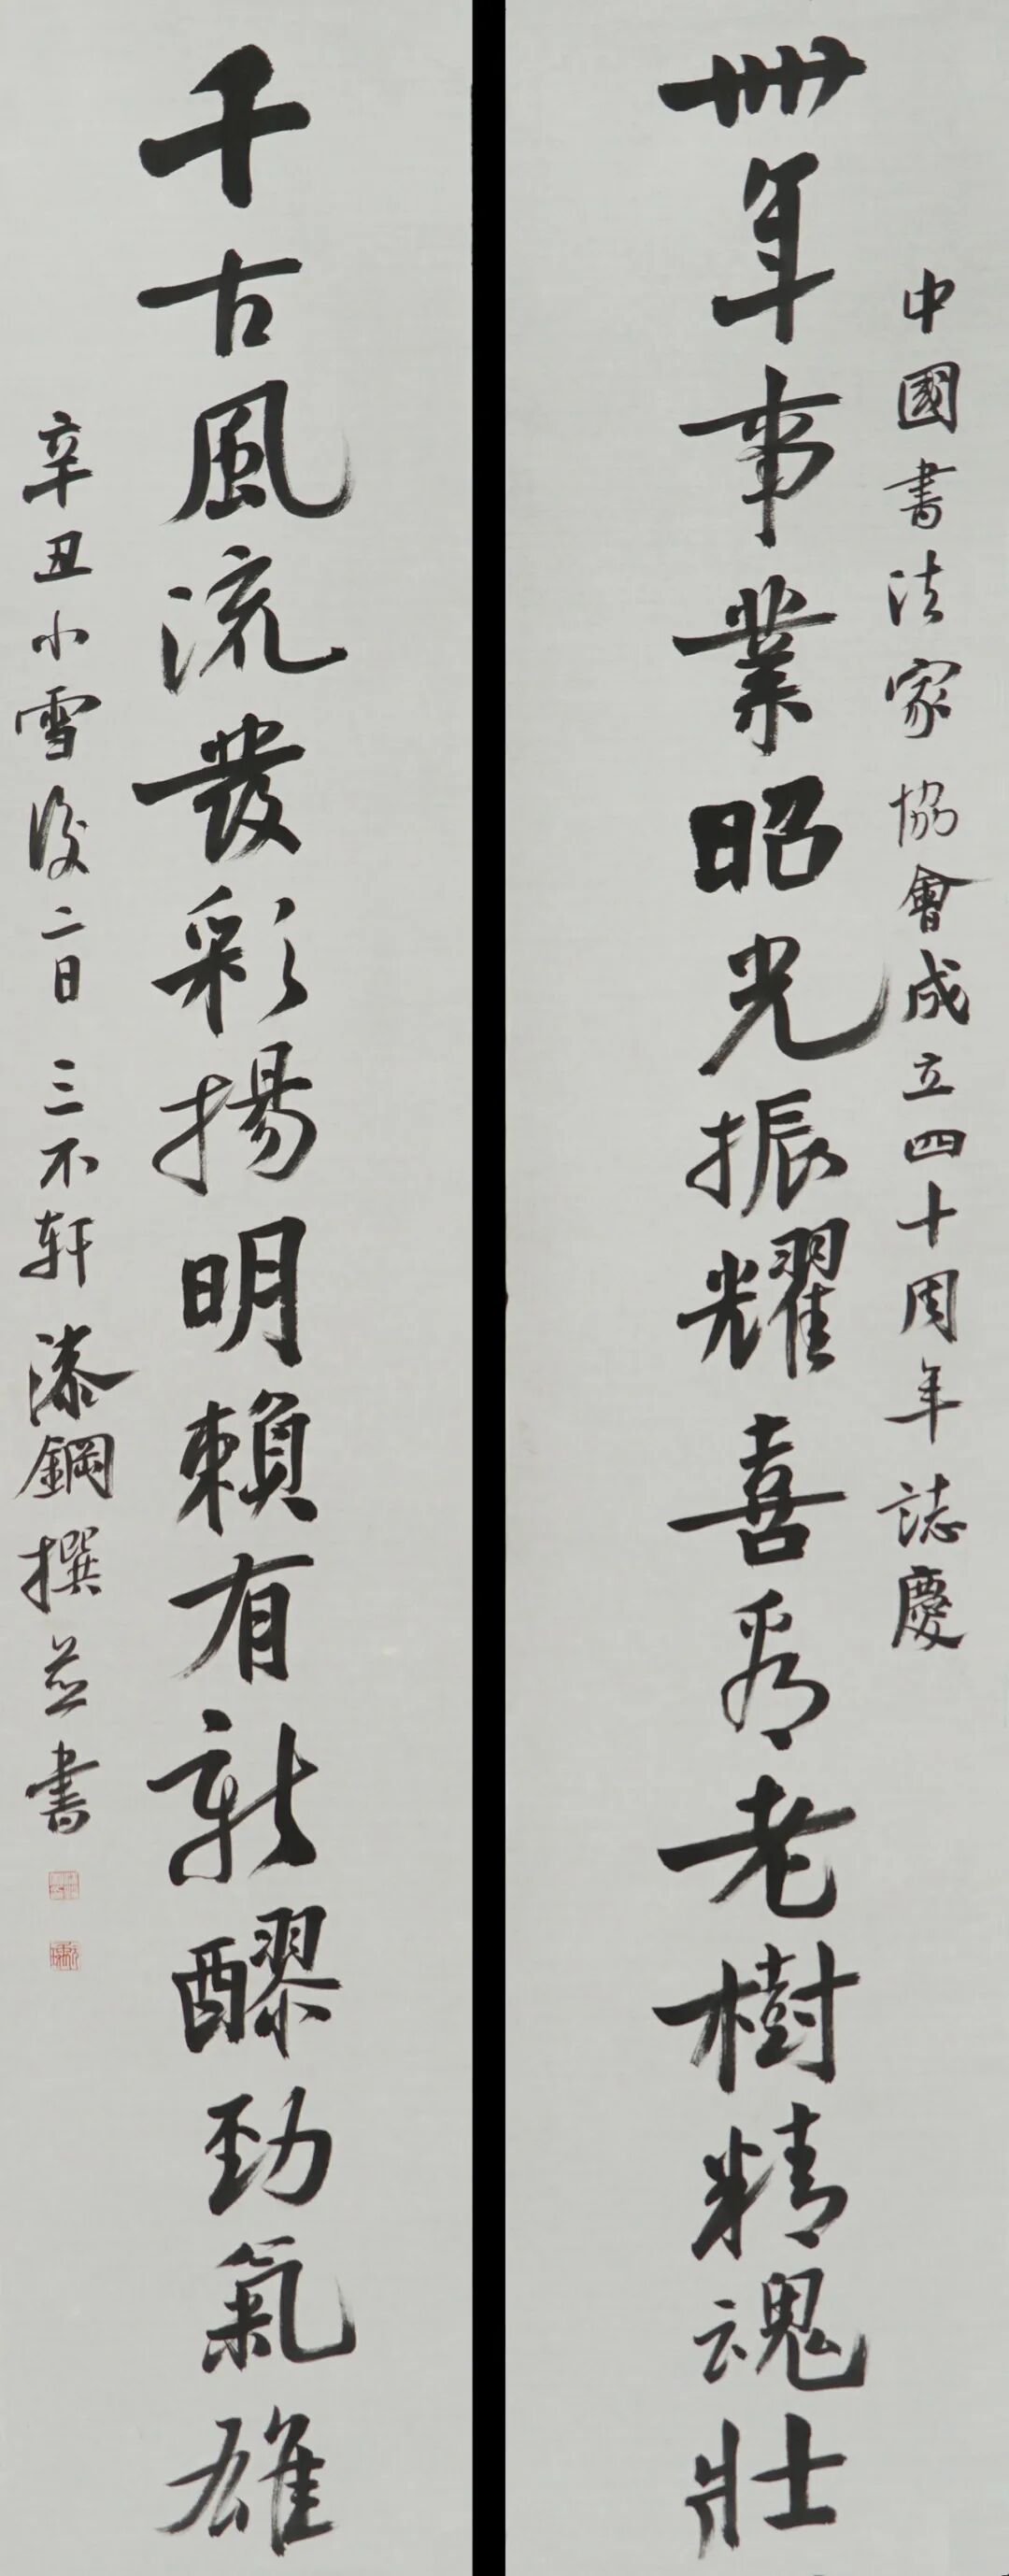 中國書法家協會成立四十周年誌慶
卌年事業昭光振耀喜看老樹精魂壯
千古風流發彩揚明賴有新醪勁氣雄
辛丑小雪後二日三不軒漆鋼撰並書